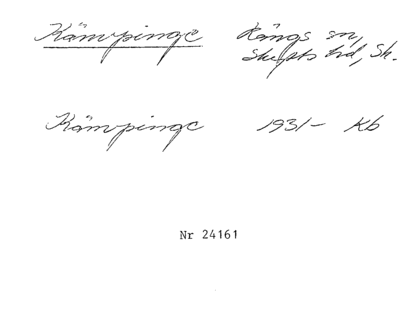 Kämpinge Rängs sn,
Skytts hd, Sk.
Kämpinge 1931– Kb
Nr 24161